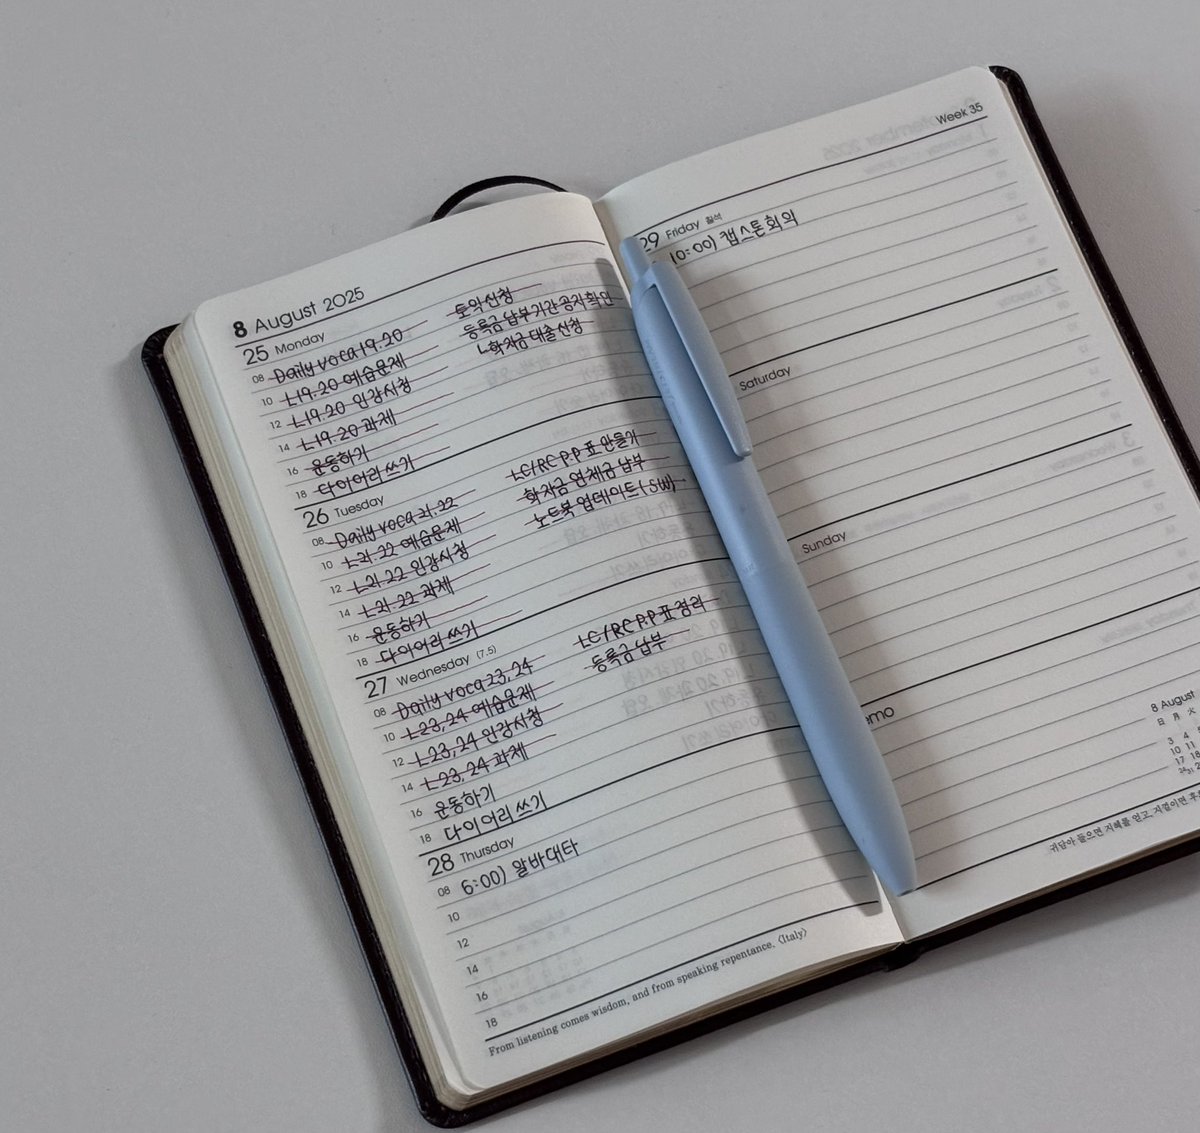 8 August 2025
25 Monday
08 Daily voca 19.20
10 L19.20 예습문제
12 L19.20 인강시청
14 L19.20 과제
16 운동하기
18 다이어리 쓰기
토익신청
등록금 납부기간 공지확인
ㄴ학자금 대출 신청
26 Tuesday
08 Daily voca 21.22
10 L21.22 예습문제
12 L21.22 인강시청
14 L21.22 과제
16 운동하기
18 다이어리 쓰기
LC/RC P.P 표 만들기
학자금 연체금 납부
노트북 업데이트(SW)
27 Wednesday (7.5)
08 Daily voca 23, 24
10 L23, 24 예습문제
12 L23, 24 인강시청
14 L23, 24 과제
16 운동하기
18 다이어리 쓰기
LC/RC P.P 표 정리
등록금 납부
28 Thursday
08 6:00) 알바대타
10
12
14
16
18
From listening comes wisdom, and from speaking repentance. (Italy)
Week 35
29 Friday 칠석
10:00) 캡스톤회의
Saturday
Sunday
8 August
日 月 火
3 4
10 11
17 18
귀담아 들으면 지혜를 얻고, 지껄이면